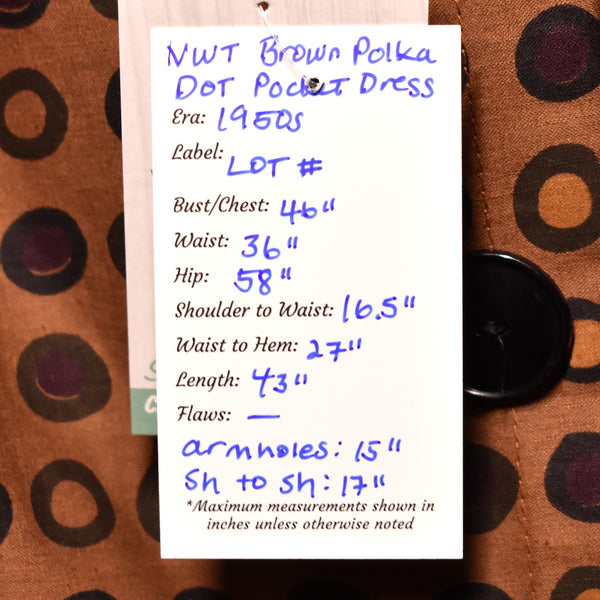 NWT Brown Polka
DOT Pocket Dress
Era: 1950s
Label: LOT #
Bust/Chest: 46"
Waist: 36"
Hip: 58"
Shoulder to Waist: 16.5"
Waist to Hem: 27"
Length: 43"
Flaws: —
armholes: 15"
Sh to sh: 17"
*Maximum measurements shown in
inches unless otherwise noted